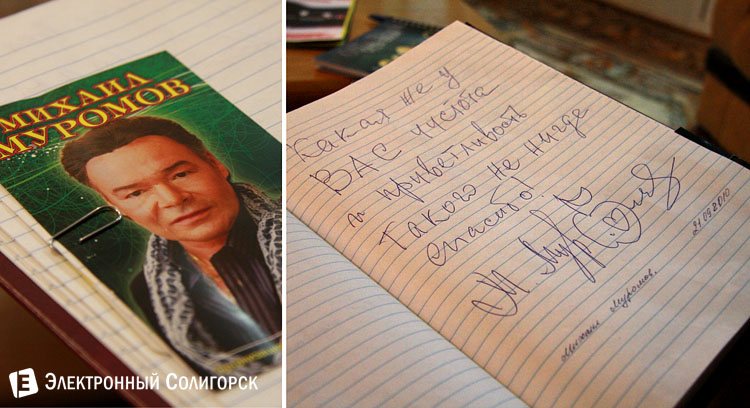 МИХАИЛ
МУРОМОВ
Электронный Солигорск
Какая же у
ВАС чистота
и приветливость
Такого не нигде
спасибо!
М. Мур
21.09.2010
Михаил Муромов.